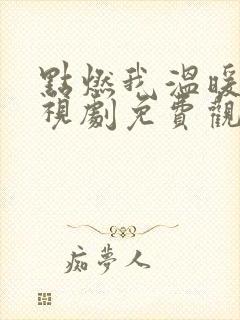 點燃我溫暖
視劇免費觀
痴夢人